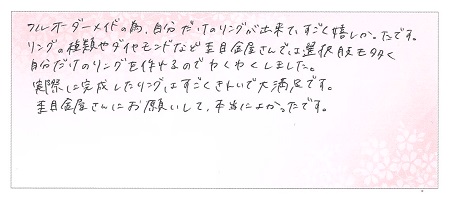 フルオーダーメイドの為、自分だけのリングが出来て、すごく嬉しかったです。
リングの種類やダイヤモンドなど杢目金屋さんでは選択肢も多く
自分だけのリングを作れるのでわくわくしました。
実際に完成したリングはすごくきれいで大満足です。
杢目金屋さんにお願いして、本当によかったです。